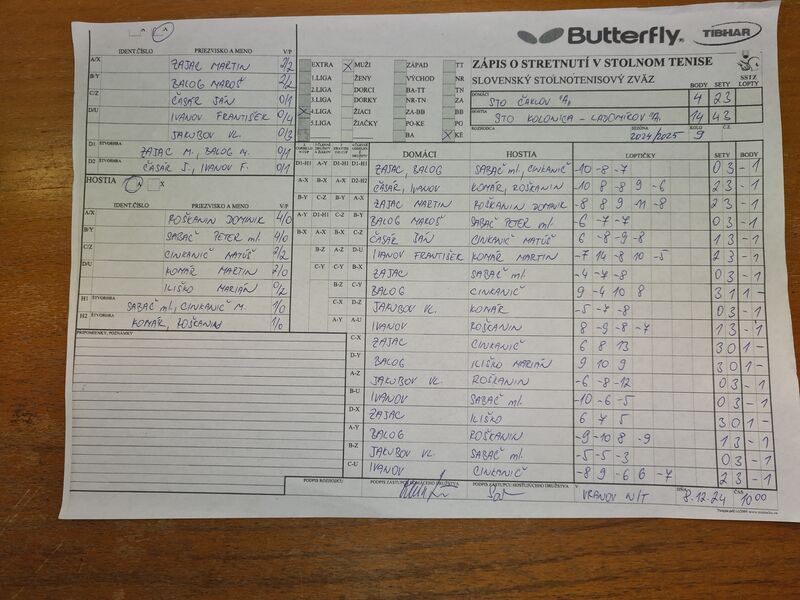 Butterfly
TIBHAR
ZÁPIS O STRETNUTÍ V STOLNOM TENISE
SLOVENSKÝ STOLNOTENISOVÝ ZVÄZ
BODY SETY LOPTY
DOMÁCI STO ČAKĽOV "A" 4 23
HOSTIA STO KOLONICA - LADOMIROV "A" 14 43
ROZHODCA SEZÓNA 2024/2025 KOLO 9 Č.Z.
EXTRA MUŽI ZÁPAD TT
1.LIGA ŽENY VÝCHOD NR
2.LIGA DORCI BA-TT TN
3.LIGA DORKY NR-TN ZA
4.LIGA ŽIACI ZA-BB BB
5.LIGA ŽIAČKY PO-KE PO
BA KE
A X
IDENT.ČÍSLO PRIEZVISKO A MENO V/P
A/X ZAJAC MARTIN 2/2
B/Y BALOG MAROŠ 2/2
C/Z ČASÁR JÁN 0/1
D/U IVANOV FRANTIŠEK 0/4
JAKUBOV VL. 0/3
D1 ŠTVORHRA ZAJAC M., BALOG M. 0/1
D2 ŠTVORHRA ČASÁR J., IVANOV F. 0/1
HOSTIA A X
IDENT.ČÍSLO PRIEZVISKO A MENO V/P
A/X ROŠKANIN DOMINIK 4/0
B/Y SABAČ PETER ml. 4/0
C/Z CINKANIČ MATÚŠ 2/2
D/U KOMÁR MARTIN 2/0
ILIŠKO MARIÁN 0/2
H1 ŠTVORHRA SABAČ ml., CINKANIČ M. 1/0
H2 ŠTVORHRA KOMÁR, ROŠKANIN 1/0
PRIPOMIENKY, POZNÁMKY
DOMÁCI HOSTIA LOPTIČKY SETY BODY
D1-H1 A-Y D1-H1 D1-H1 ZAJAC, BALOG SABAČ ml, CINKANIČ -10 -8 -7 0 3 - 1
A-X B-X A-X D2-H2 ČASÁR, IVANOV KOMÁR, ROŠKANIN -10 8 -8 9 -6 2 3 - 1
B-Y C-Z B-Y A-X ZAJAC MARTIN ROŠKANIN DOMINIK -8 8 9 -11 -8 2 3 - 1
A-Y D1-H1 C-Z B-Y BALOG MAROŠ SABAČ PETER ml. -6 -7 -7 0 3 - 1
B-X A-X B-X C-Z ČASÁR JÁN CINKANIČ MATÚŠ 6 -8 -9 -8 1 3 - 1
B-Z A-Z D-U IVANOV FRANTIŠEK KOMÁR MARTIN -7 14 -8 10 -5 2 3 - 1
C-Y C-Y B-X ZAJAC SABAČ ml. -4 -7 -8 0 3 - 1
B-Z C-Y BALOG CINKANIČ 9 -4 10 8 3 1 1 -
C-X D-Z JAKUBOV VL. KOMÁR -5 -7 -8 0 3 - 1
A-Y A-U IVANOV ROŠKANIN 8 -9 -8 -7 1 3 - 1
C-X ZAJAC CINKANIČ 6 8 13 3 0 1 -
D-Y BALOG ILIŠKO MARIÁN 9 10 9 3 0 1 -
A-Z JAKUBOV VL. ROŠKANIN -6 -8 -12 0 3 - 1
B-U IVANOV SABAČ ml. -10 -6 -5 0 3 - 1
D-X ZAJAC ILIŠKO 6 7 5 3 0 1 -
A-Y BALOG ROŠKANIN -9 -10 8 -9 1 3 - 1
B-Z JAKUBOV VL. SABAČ ml. -5 -5 -3 0 3 - 1
C-U IVANOV CINKANIČ -8 9 -6 6 -7 2 3 - 1
PODPIS ROZHODCU PODPIS ZÁSTUPCU DOMÁCEHO DRUŽSTVA PODPIS ZÁSTUPCU HOSŤUJÚCEHO DRUŽSTVA V VRANOV N/T DŇA 8.12.24 ČAS 10 00